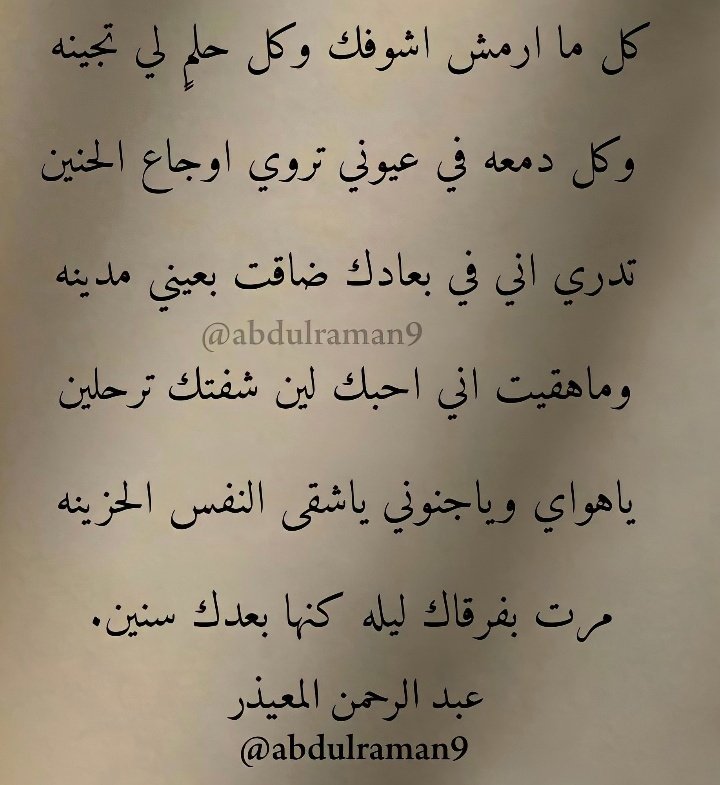 كل ما ارمش اشوفك وكل حلمٍ لي تجينه
وكل دمعه في عيوني تروي اوجاع الحنين
تدري اني في بعادك ضاقت بعيني مدينه
@abdulraman9
وماهقيت اني احبك لين شفتك ترحلين
ياهواي وياجنوني ياشقى النفس الحزينه
مرت بفرقاك ليله كنها بعدك سنين.
عبد الرحمن المعيذر
@abdulraman9